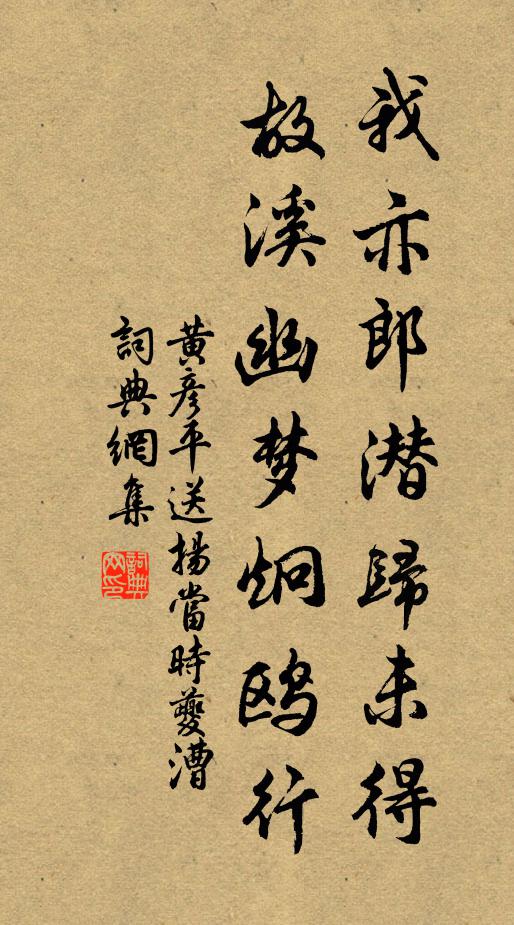 我亦郎潜歸未得
故溪幽梦炯鸥行
黃彥平送揚當時夔漕
詞典網集
詞典網印